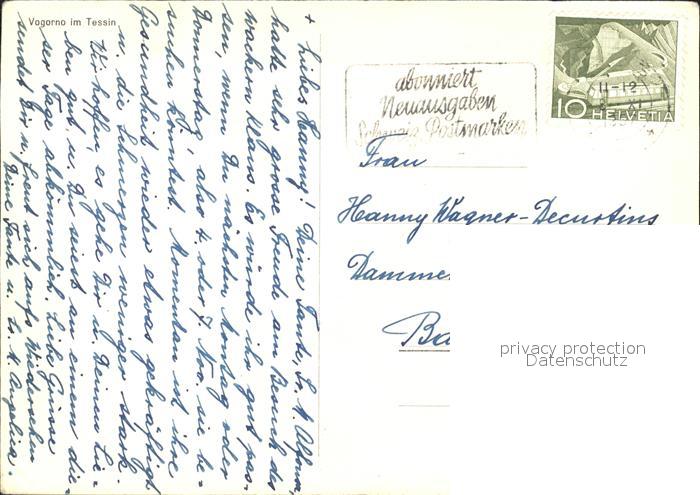 Vogorno im Tessin
+
Liebes Hanny! Deine Tante, Sr. M. Alfonsa,
hatte sehr grosse Freude am Besuch des
wackern Klaus. Es würde ihr gut pas-
sen, wenn Du nächsten Montag oder
Donnerstag, also 4. oder 7. Nov. sie be-
suchen könntest. Momentan ist ihre
Gesundheit wieder etwas gekräftigt
u. die Schmerzen weniger stark.
Wir hoffen, es gehe Dir u. Deinen Lie-
ben gut, u. Du seiest an einem die-
ser Tage abkömmlich. Liebe Grüsse
sendet Dir u. freut sich aufs Wiedersehen
Deine Tante u. Sr. M. Angelica.
abonniert
Neuausgaben
Schweiz. Postmarken
11-12
10 HELVETIA
Frau
Hanny Wagner-Decurtins
Damme
Ba
privacy protection
Datenschutz